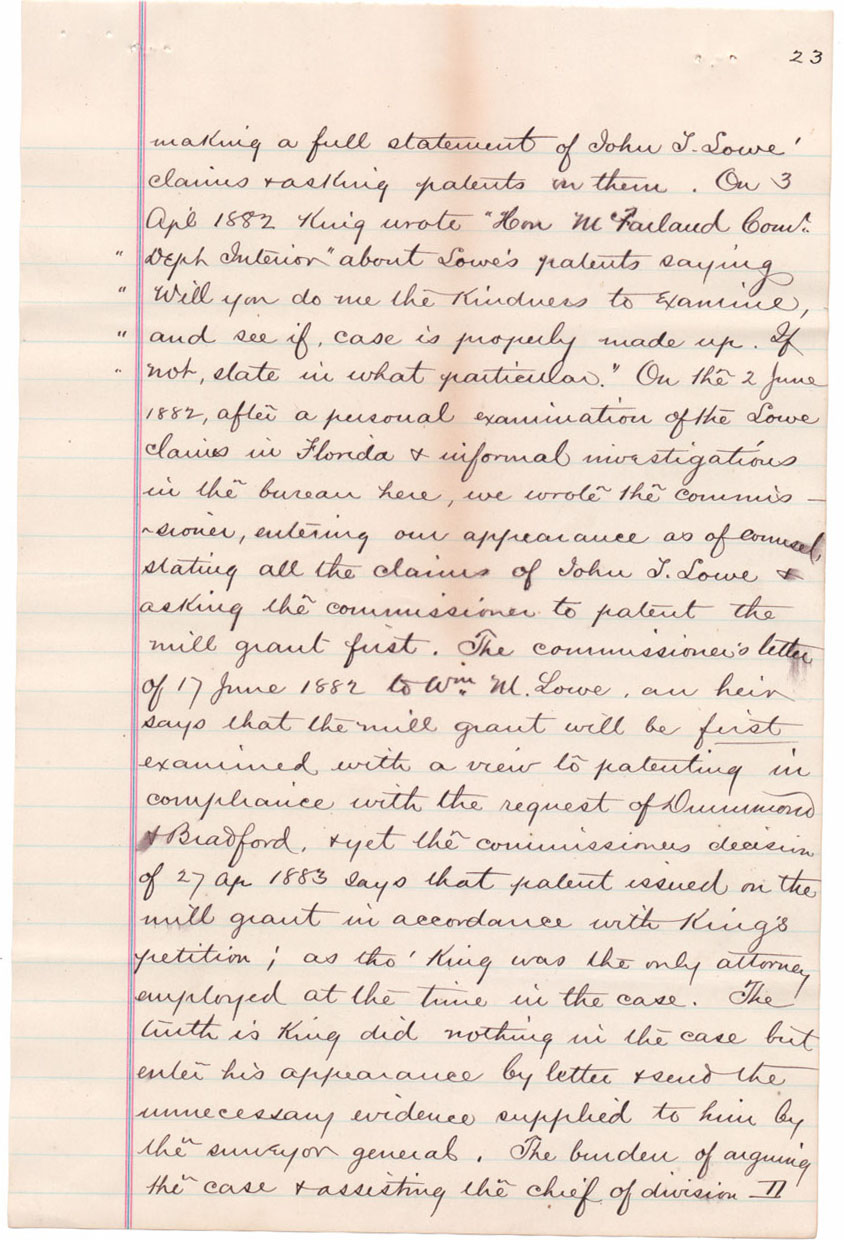 23
making a full statement of John T. Lowe'
claims & asking patents on them. On 3
Apl 1882 King wrote "Hon McFarland Comr.
" Dept Interior" about Lowe's patents saying
" Will you do me the Kindness to Examine,
" and see if, case is properly made up. If
" not, state in what particular." On the 2 June
1882, after a personal examination of the Lowe
claims in Florida & informal investigations
in the bureau here, we wrote the commis-
-sioner, entering our appearance as of counsel,
stating all the claims of John T. Lowe &
asking the commissioner to patent the
mill grant first. The commissioner's letter
of 17 June 1882 to Wm. M. Lowe, an heir
says that the mill grant will be first
examined with a view to patenting in
compliance with the request of Drummond
& Bradford, & yet the commissioners decision
of 27 ap 1883 says that patent issued on the
mill grant in accordance with King's
petition; as tho' King was the only attorney
employed at the time in the case. The
truth is King did nothing in the case but
enter his appearance by letter & send the
unnecessary evidence supplied to him by
the surveyor general. The burden of arguing
the case & assisting the chief of division II